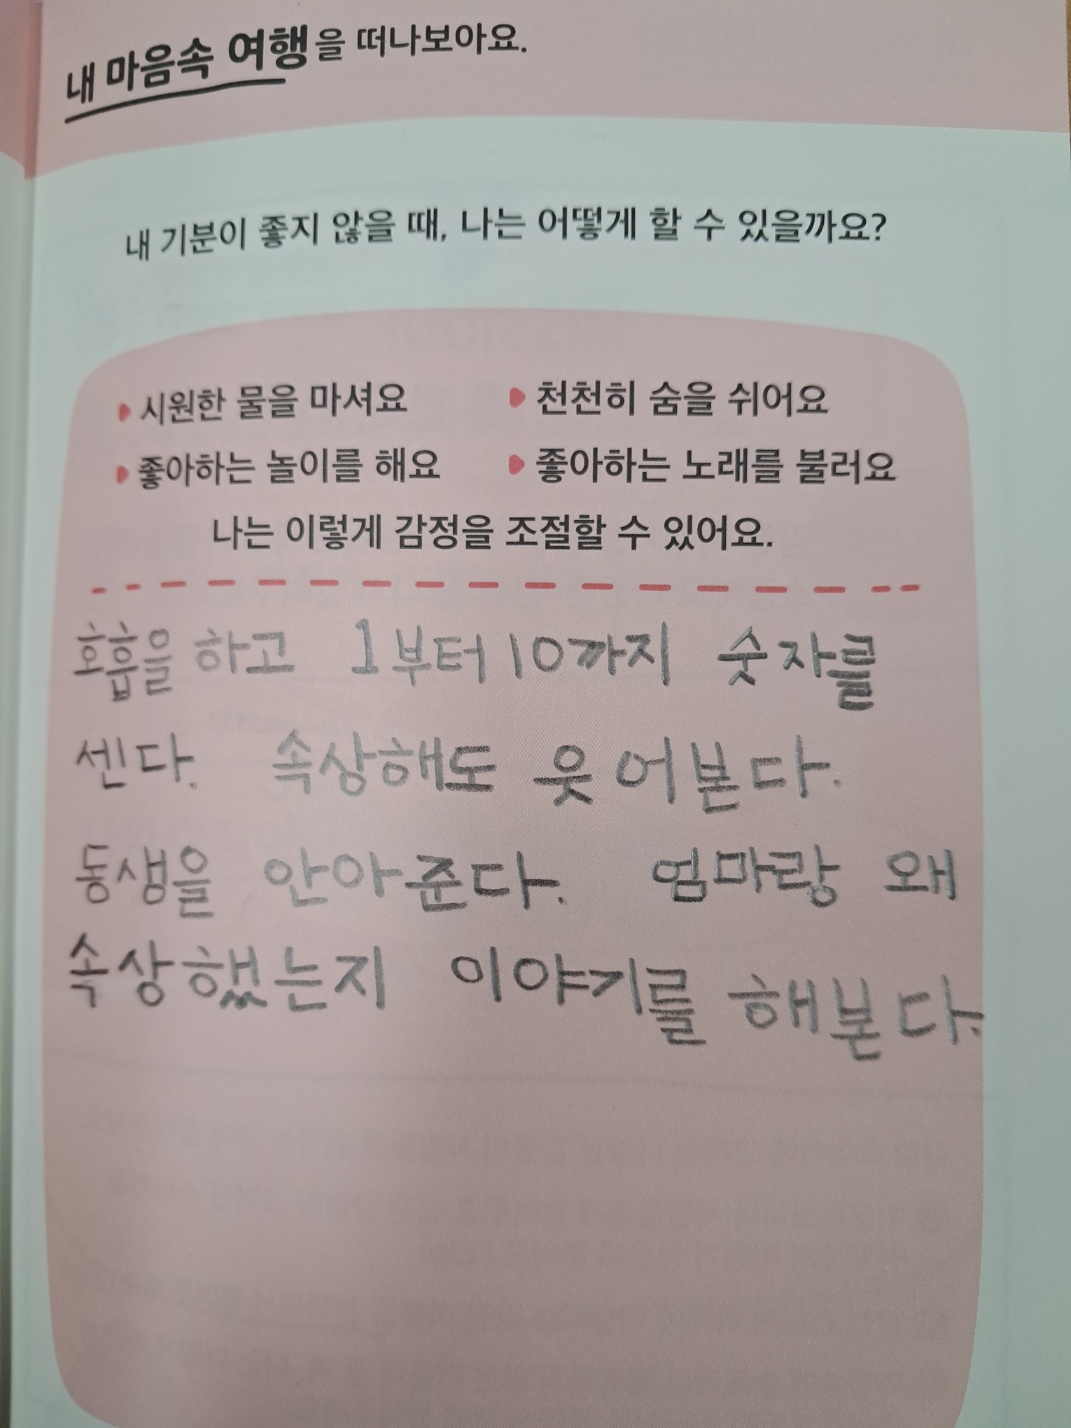 내 마음속 여행을 떠나보아요.
내 기분이 좋지 않을 때, 나는 어떻게 할 수 있을까요?
시원한 물을 마셔요 천천히 숨을 쉬어요
좋아하는 놀이를 해요 좋아하는 노래를 불러요
나는 이렇게 감정을 조절할 수 있어요.
호흡을 하고 1부터 10까지 숫자를
센다. 속상해도 웃어본다.
동생을 안아준다. 엄마랑 왜
속상했는지 이야기를 해본다.